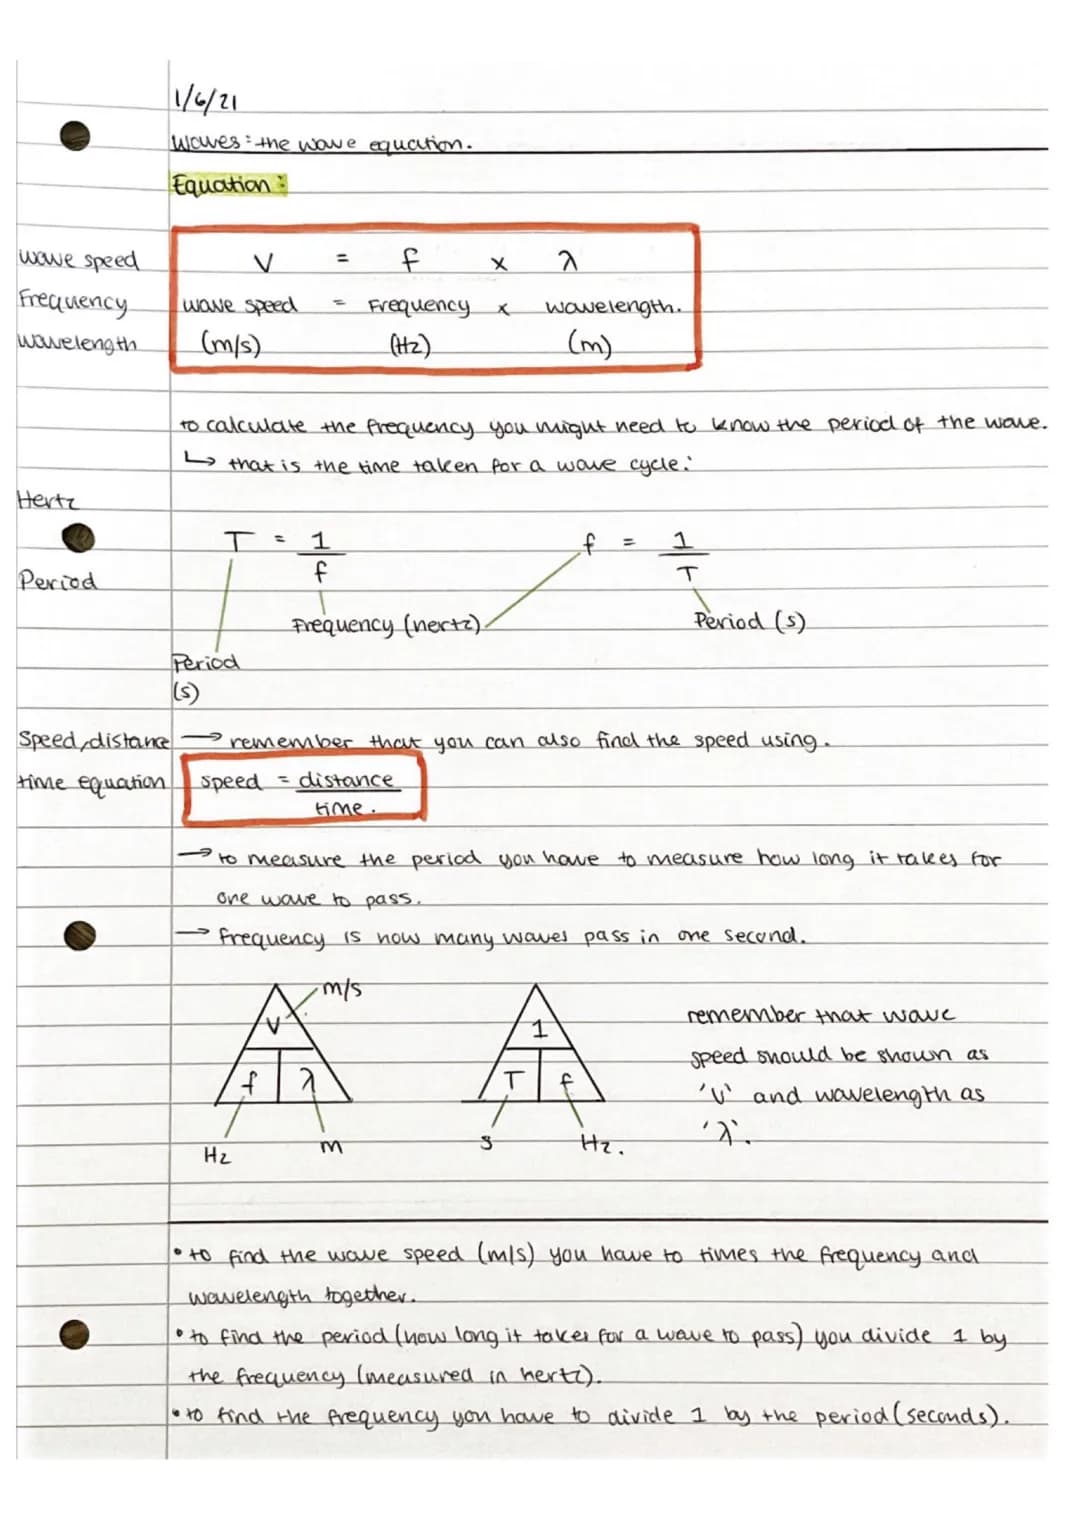 1/6/21
Waves: the wave equation.
Equation:
wave speed
Frequency
wavelength
V = f x λ
wave speed = Frequency x wavelength.
(m/s) (Hz) (m)
to calculate the frequency you might need to know the period of the wave.
↳ that is the time taken for a wave cycle:
Hertz
Period
T = 1/f
f = 1/T
Frequency (hertz)
Period (s)
Period
(s)
Speed, distance
time equation
→ remember that you can also find the speed using.
speed = distance
time.
→ to measure the period you have to measure how long it takes for
one wave to pass.
→ frequency is how many waves pass in one second.
m/s
V
f λ
Hz m
1
T f
s Hz.
remember that wave
speed should be shown as
'V' and wavelength as
'λ'.
• to find the wave speed (m/s) you have to times the frequency and
wavelength together.
• to find the period (how long it takes for a wave to pass) you divide 1 by
the frequency (measured in hertz).
• to find the frequency you have to divide 1 by the period (seconds).